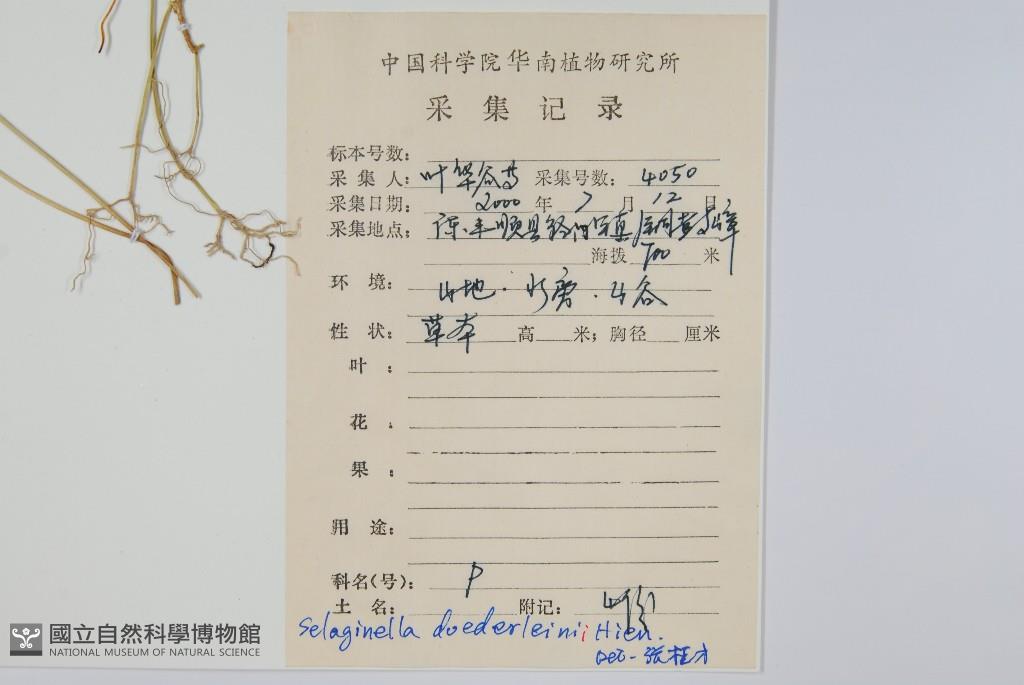 中国科学院华南植物研究所
采集记录
标本号数:
采集人: 叶华谷等 采集号数: 4050
采集日期: 2000 年 7 月 12 日
采集地点: 丰顺县
海拨 700 米
环境: 山地.水旁.山谷
性状: 草本 高 米; 胸径 厘米
叶:
花:
果:
用途:
科名(号): P
土名: 附记:
Selaginella doederleinii Hien.
DET-张桂才
國立自然科學博物館
NATIONAL MUSEUM OF NATURAL SCIENCE